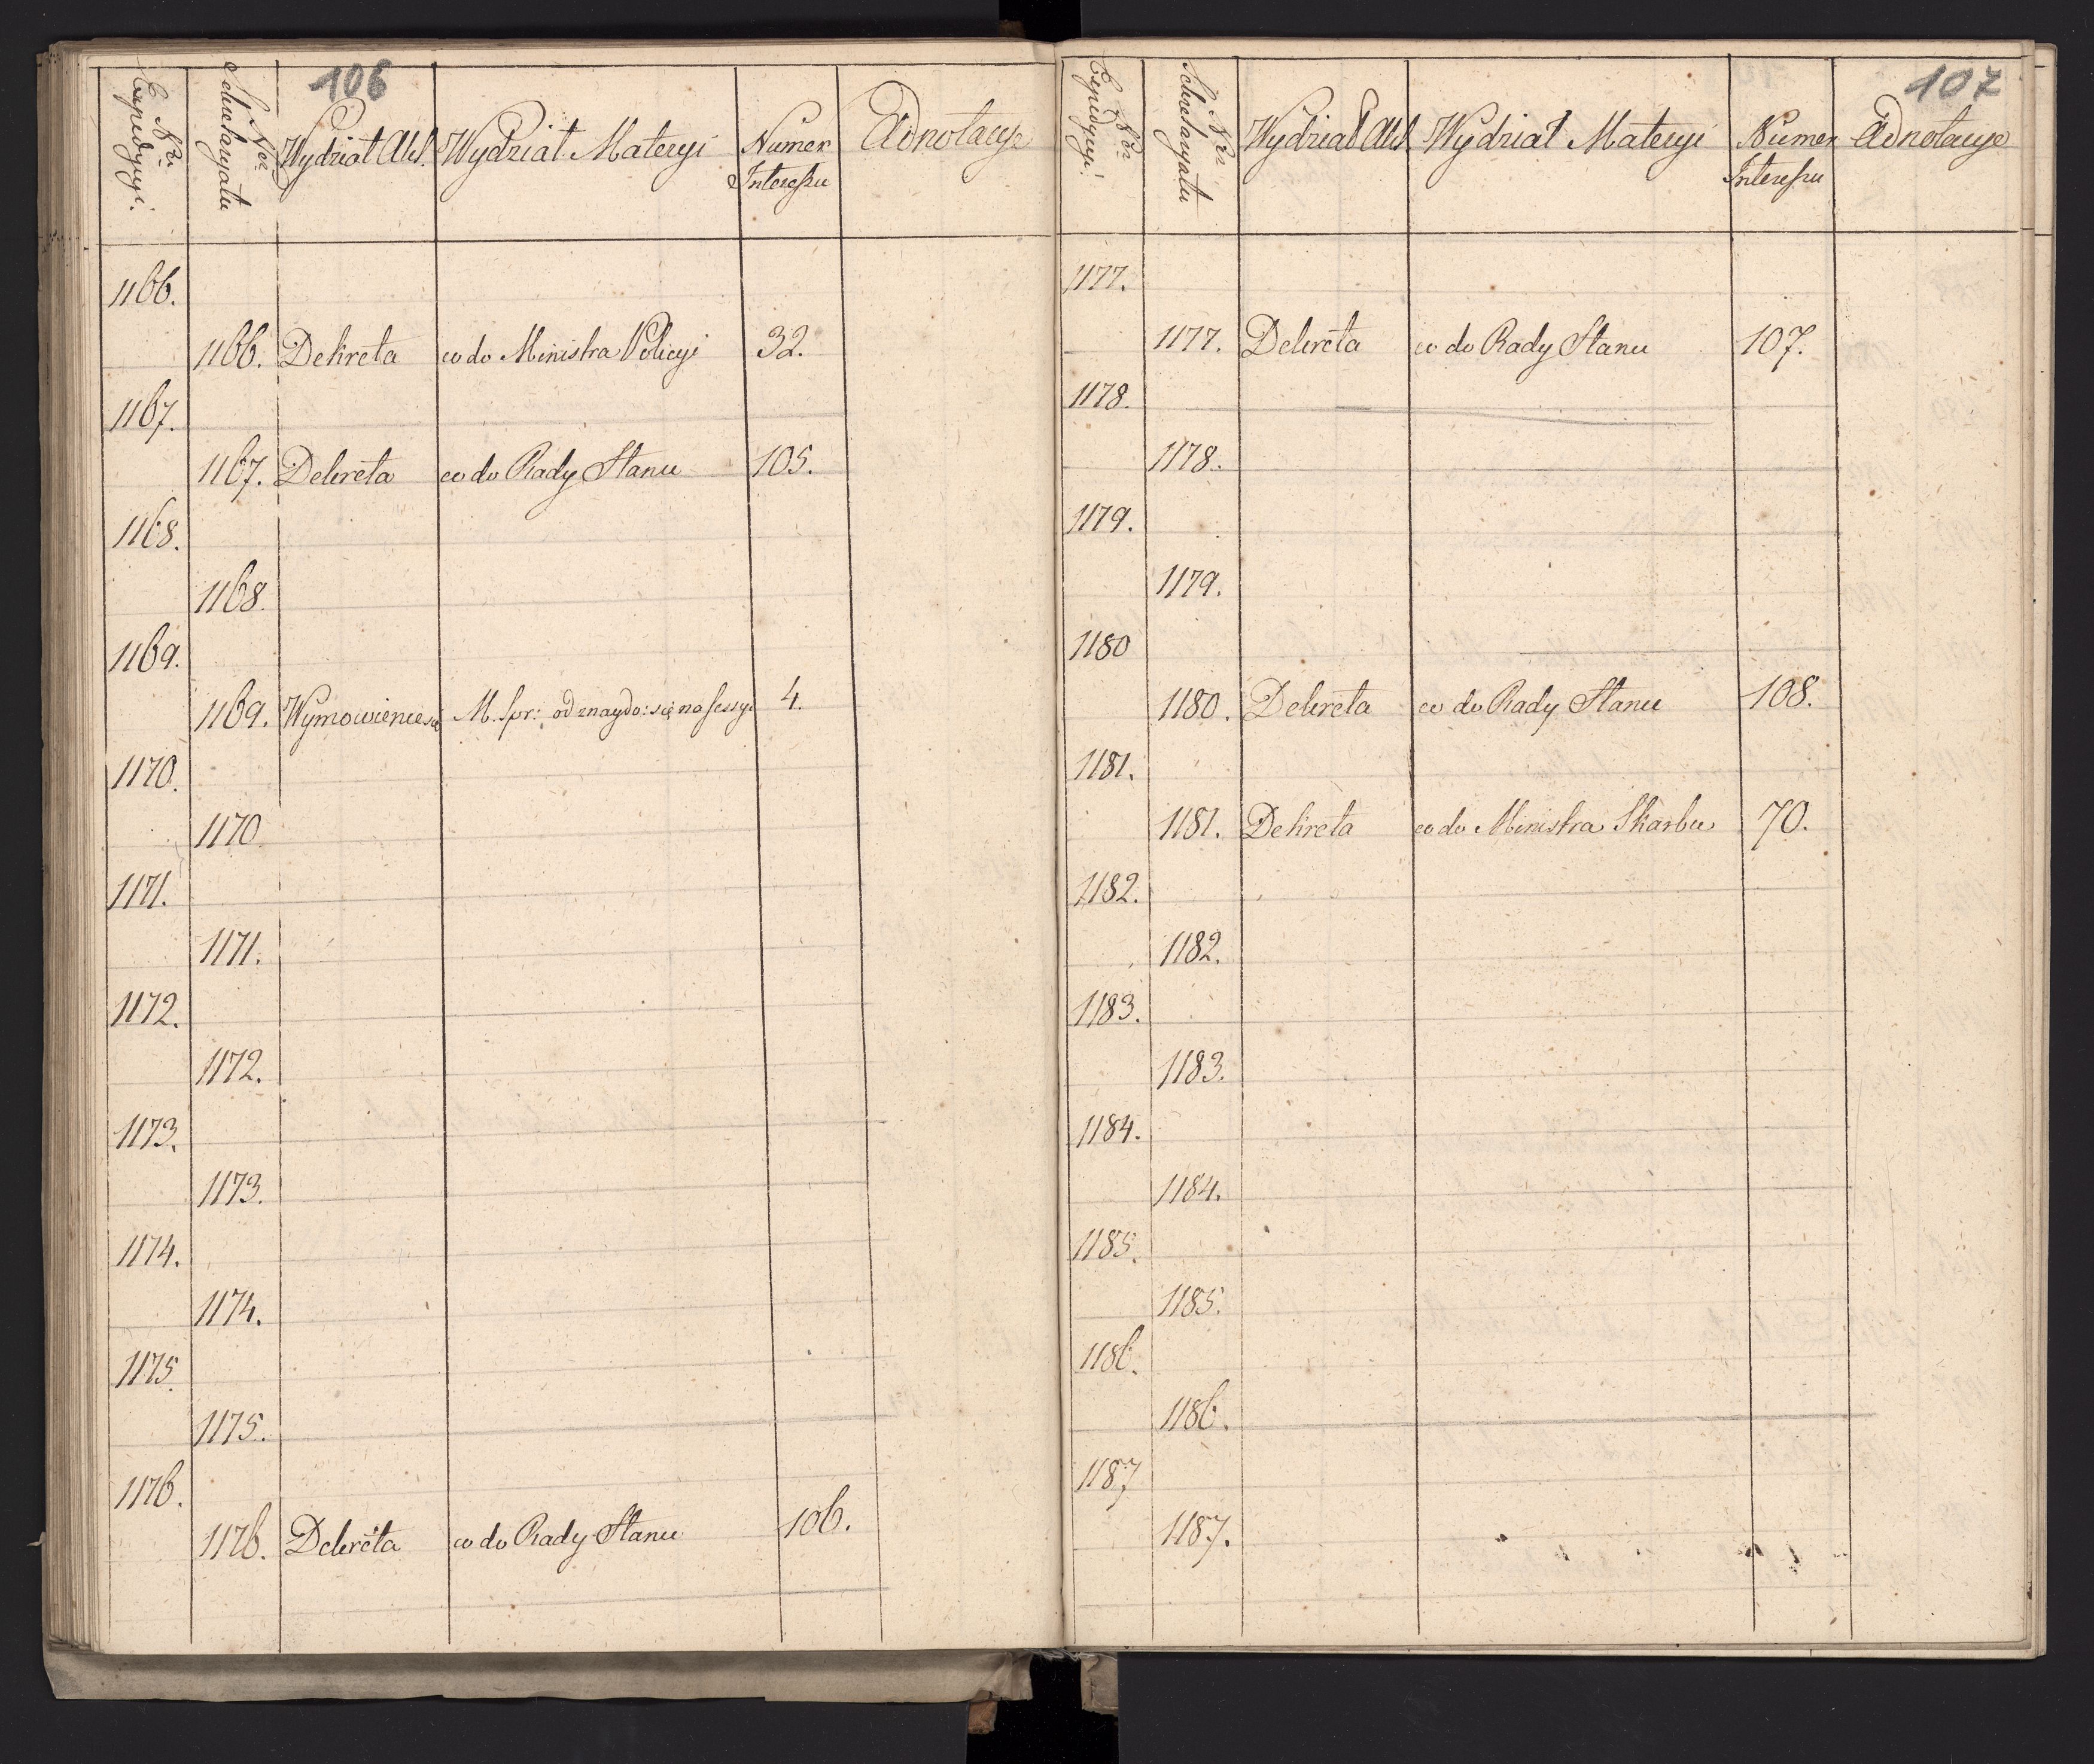 106
Nro Expedycyi.
Nro Sekretaryatu
Wydział Akt.
Wydział Materyi
Numer Interessu
Adnotacye
1166.
1166. Dekreta co do Ministra Policyi 32.
1167.
1167. Dekreta co do Rady Stanu 105.
1168.
1168.
1169.
1169. Wymowienie się M. Spr: od znaydo: się na sessyi 4.
1170.
1170
1171.
1171.
1172.
1172.
1173.
1173.
1174.
1174.
1175.
1175.
1176.
1176. Dekreta co do Rady Stanu 106.
107
Nro Expedycyi.
Nro Sekretaryatu
Wydział Akt.
Wydział Materyi
Numer Interessu
Adnotacye
1177.
1177. Dekreta co do Rady Stanu 107.
1178.
1178.
1179.
1179.
1180
1180. Dekreta co do Rady Stanu 108.
1181.
1181. Dekreta co do Ministra Skarbu 70.
1182.
1182.
1183.
1183.
1184.
1184.
1185.
1185.
1186.
1186.
1187
1187.